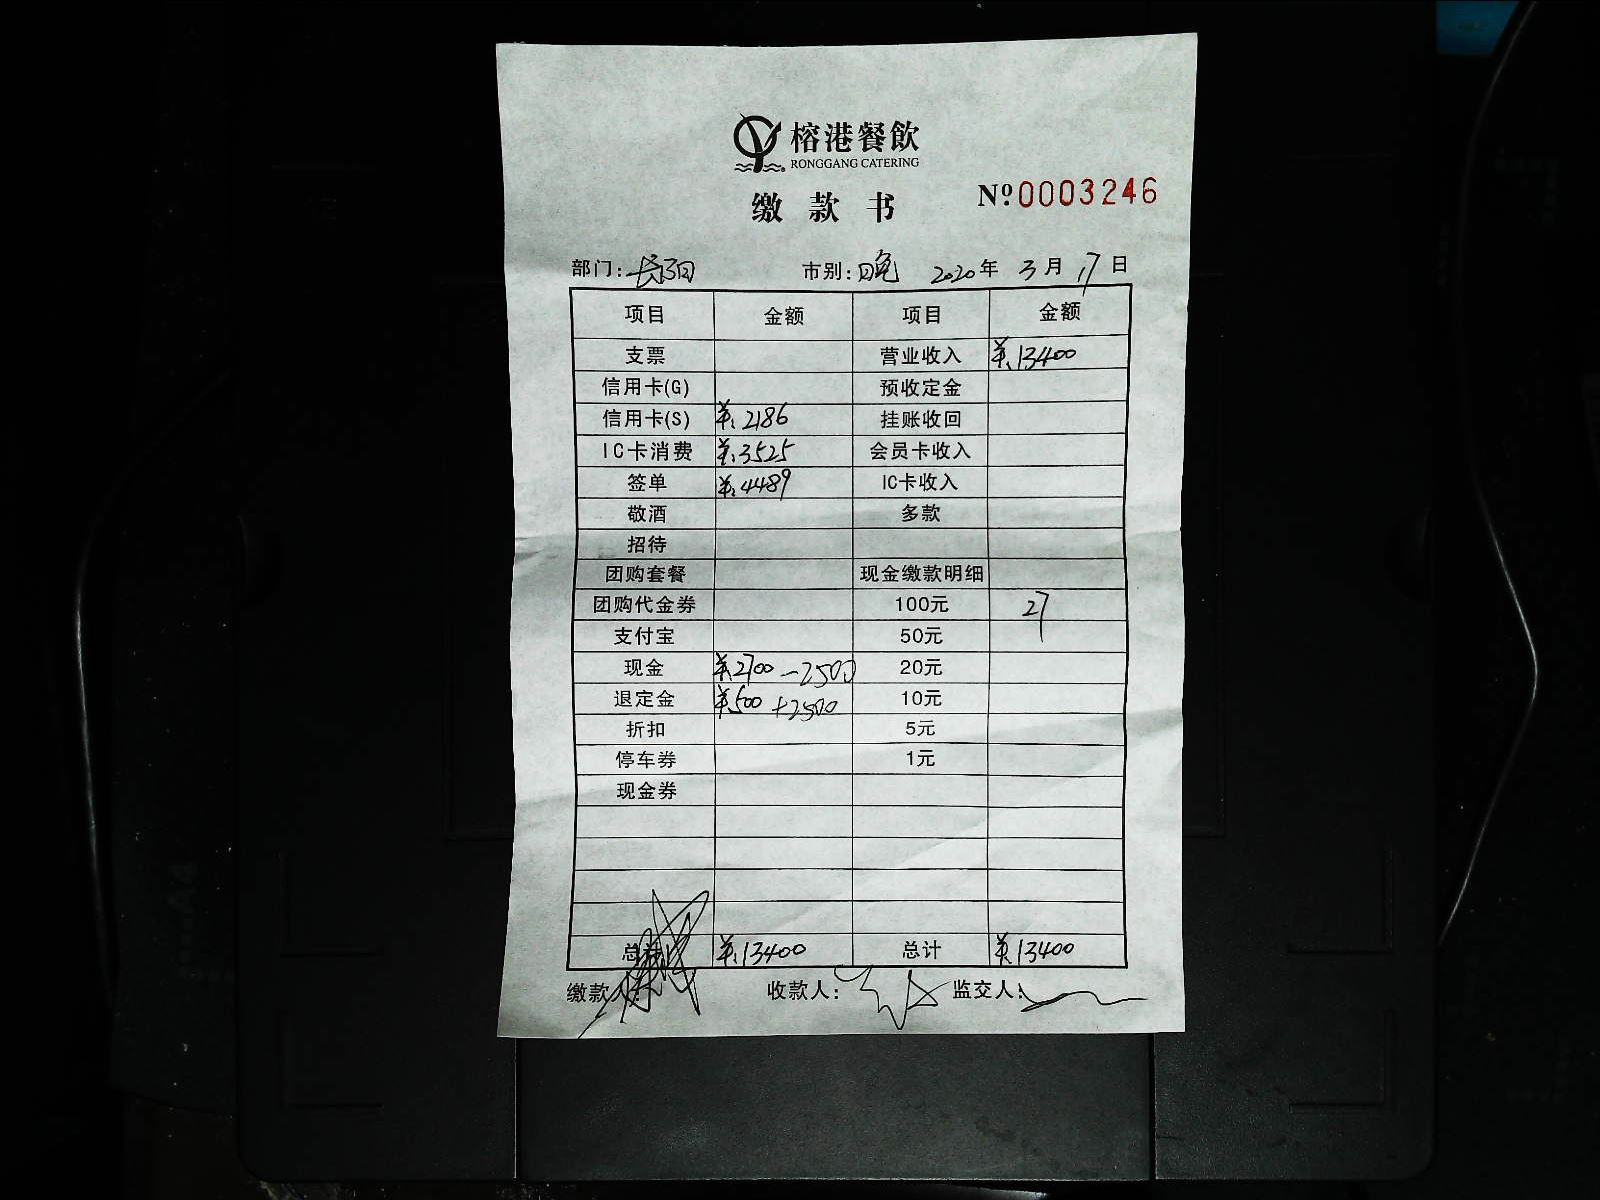 榕港餐飲
RONGGANG CATERING
缴款书 Nº0003246
部门:长阳 市别:晚 2020年3月17日
项目 金额 项目 金额
支票 营业收入 ¥.13400
信用卡(G) 预收定金
信用卡(S) ¥.2186 挂账收回
IC卡消费 ¥.3525 会员卡收入
签单 ¥.4489 IC卡收入
敬酒 多款
招待
团购套餐 现金缴款明细
团购代金券 100元 27
支付宝 50元
现金 ¥2700 -2500 20元
退定金 ¥500 +2500 10元
折扣 5元
停车券 1元
现金券
总计 ¥.13400 总计 ¥.13400
缴款人: 收款人: 监交人: